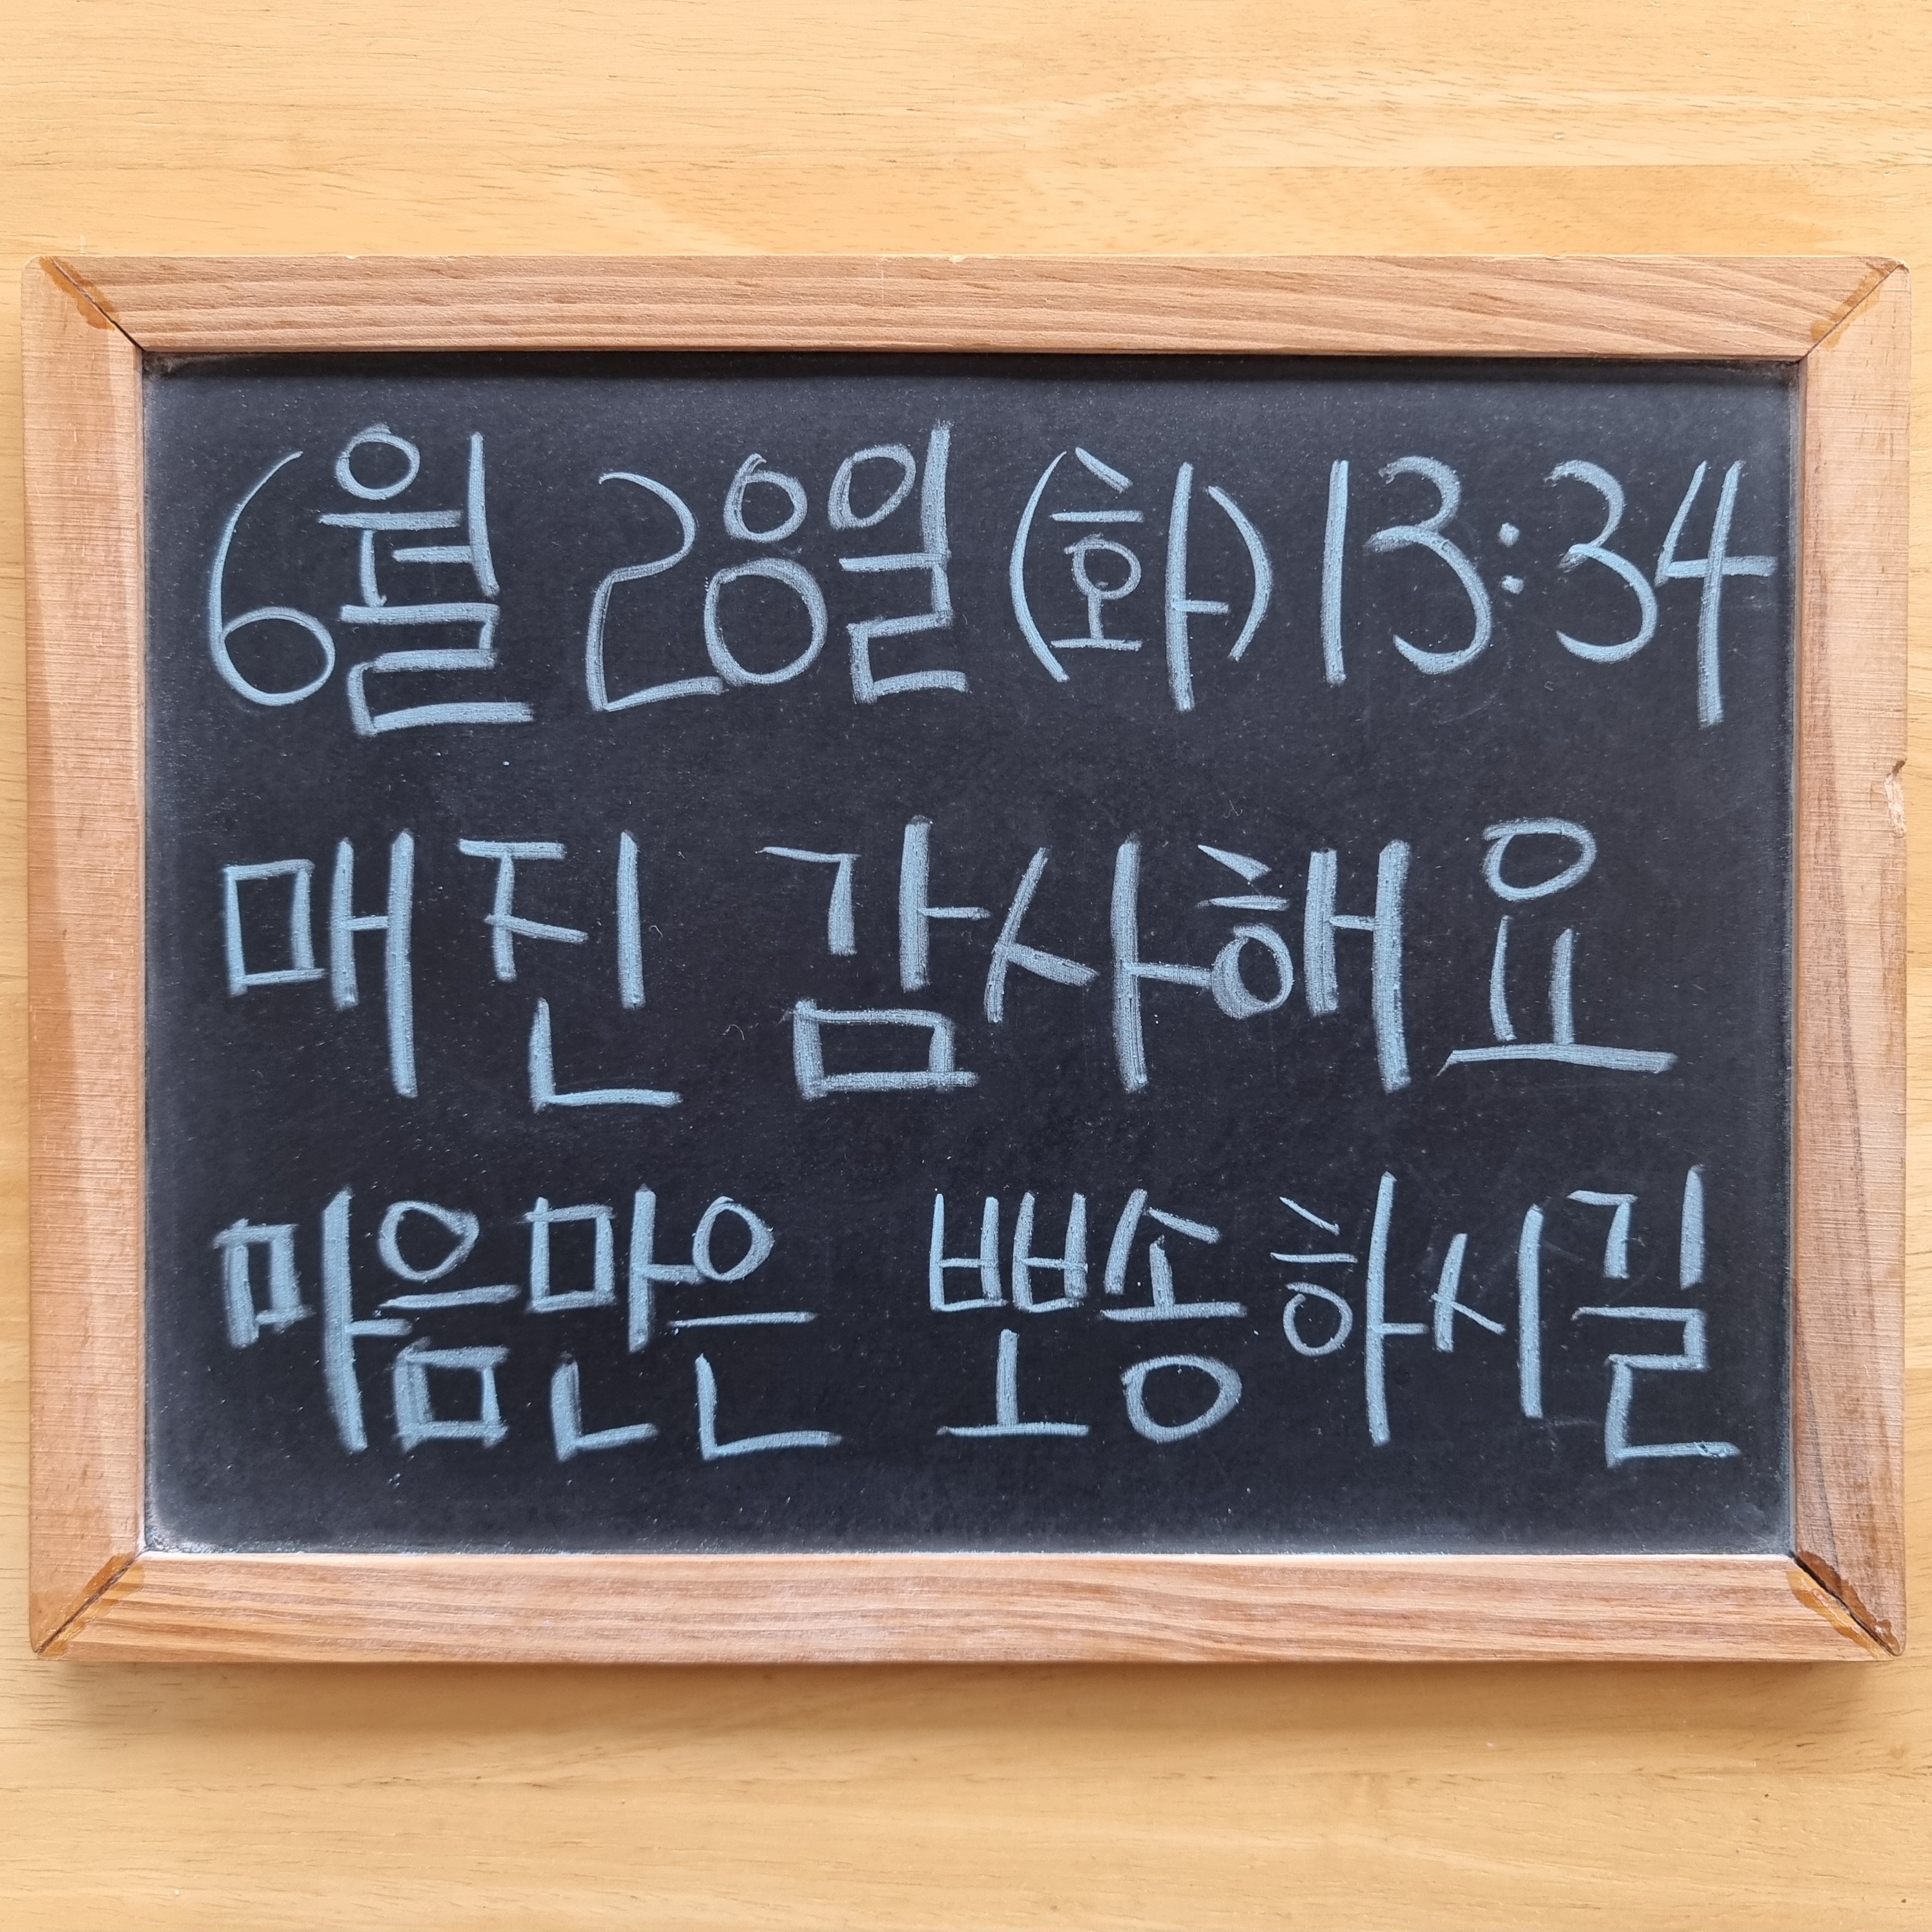 6월 28일 (화) 13:34
매진 감사해요
마음만은 뽀송하시길